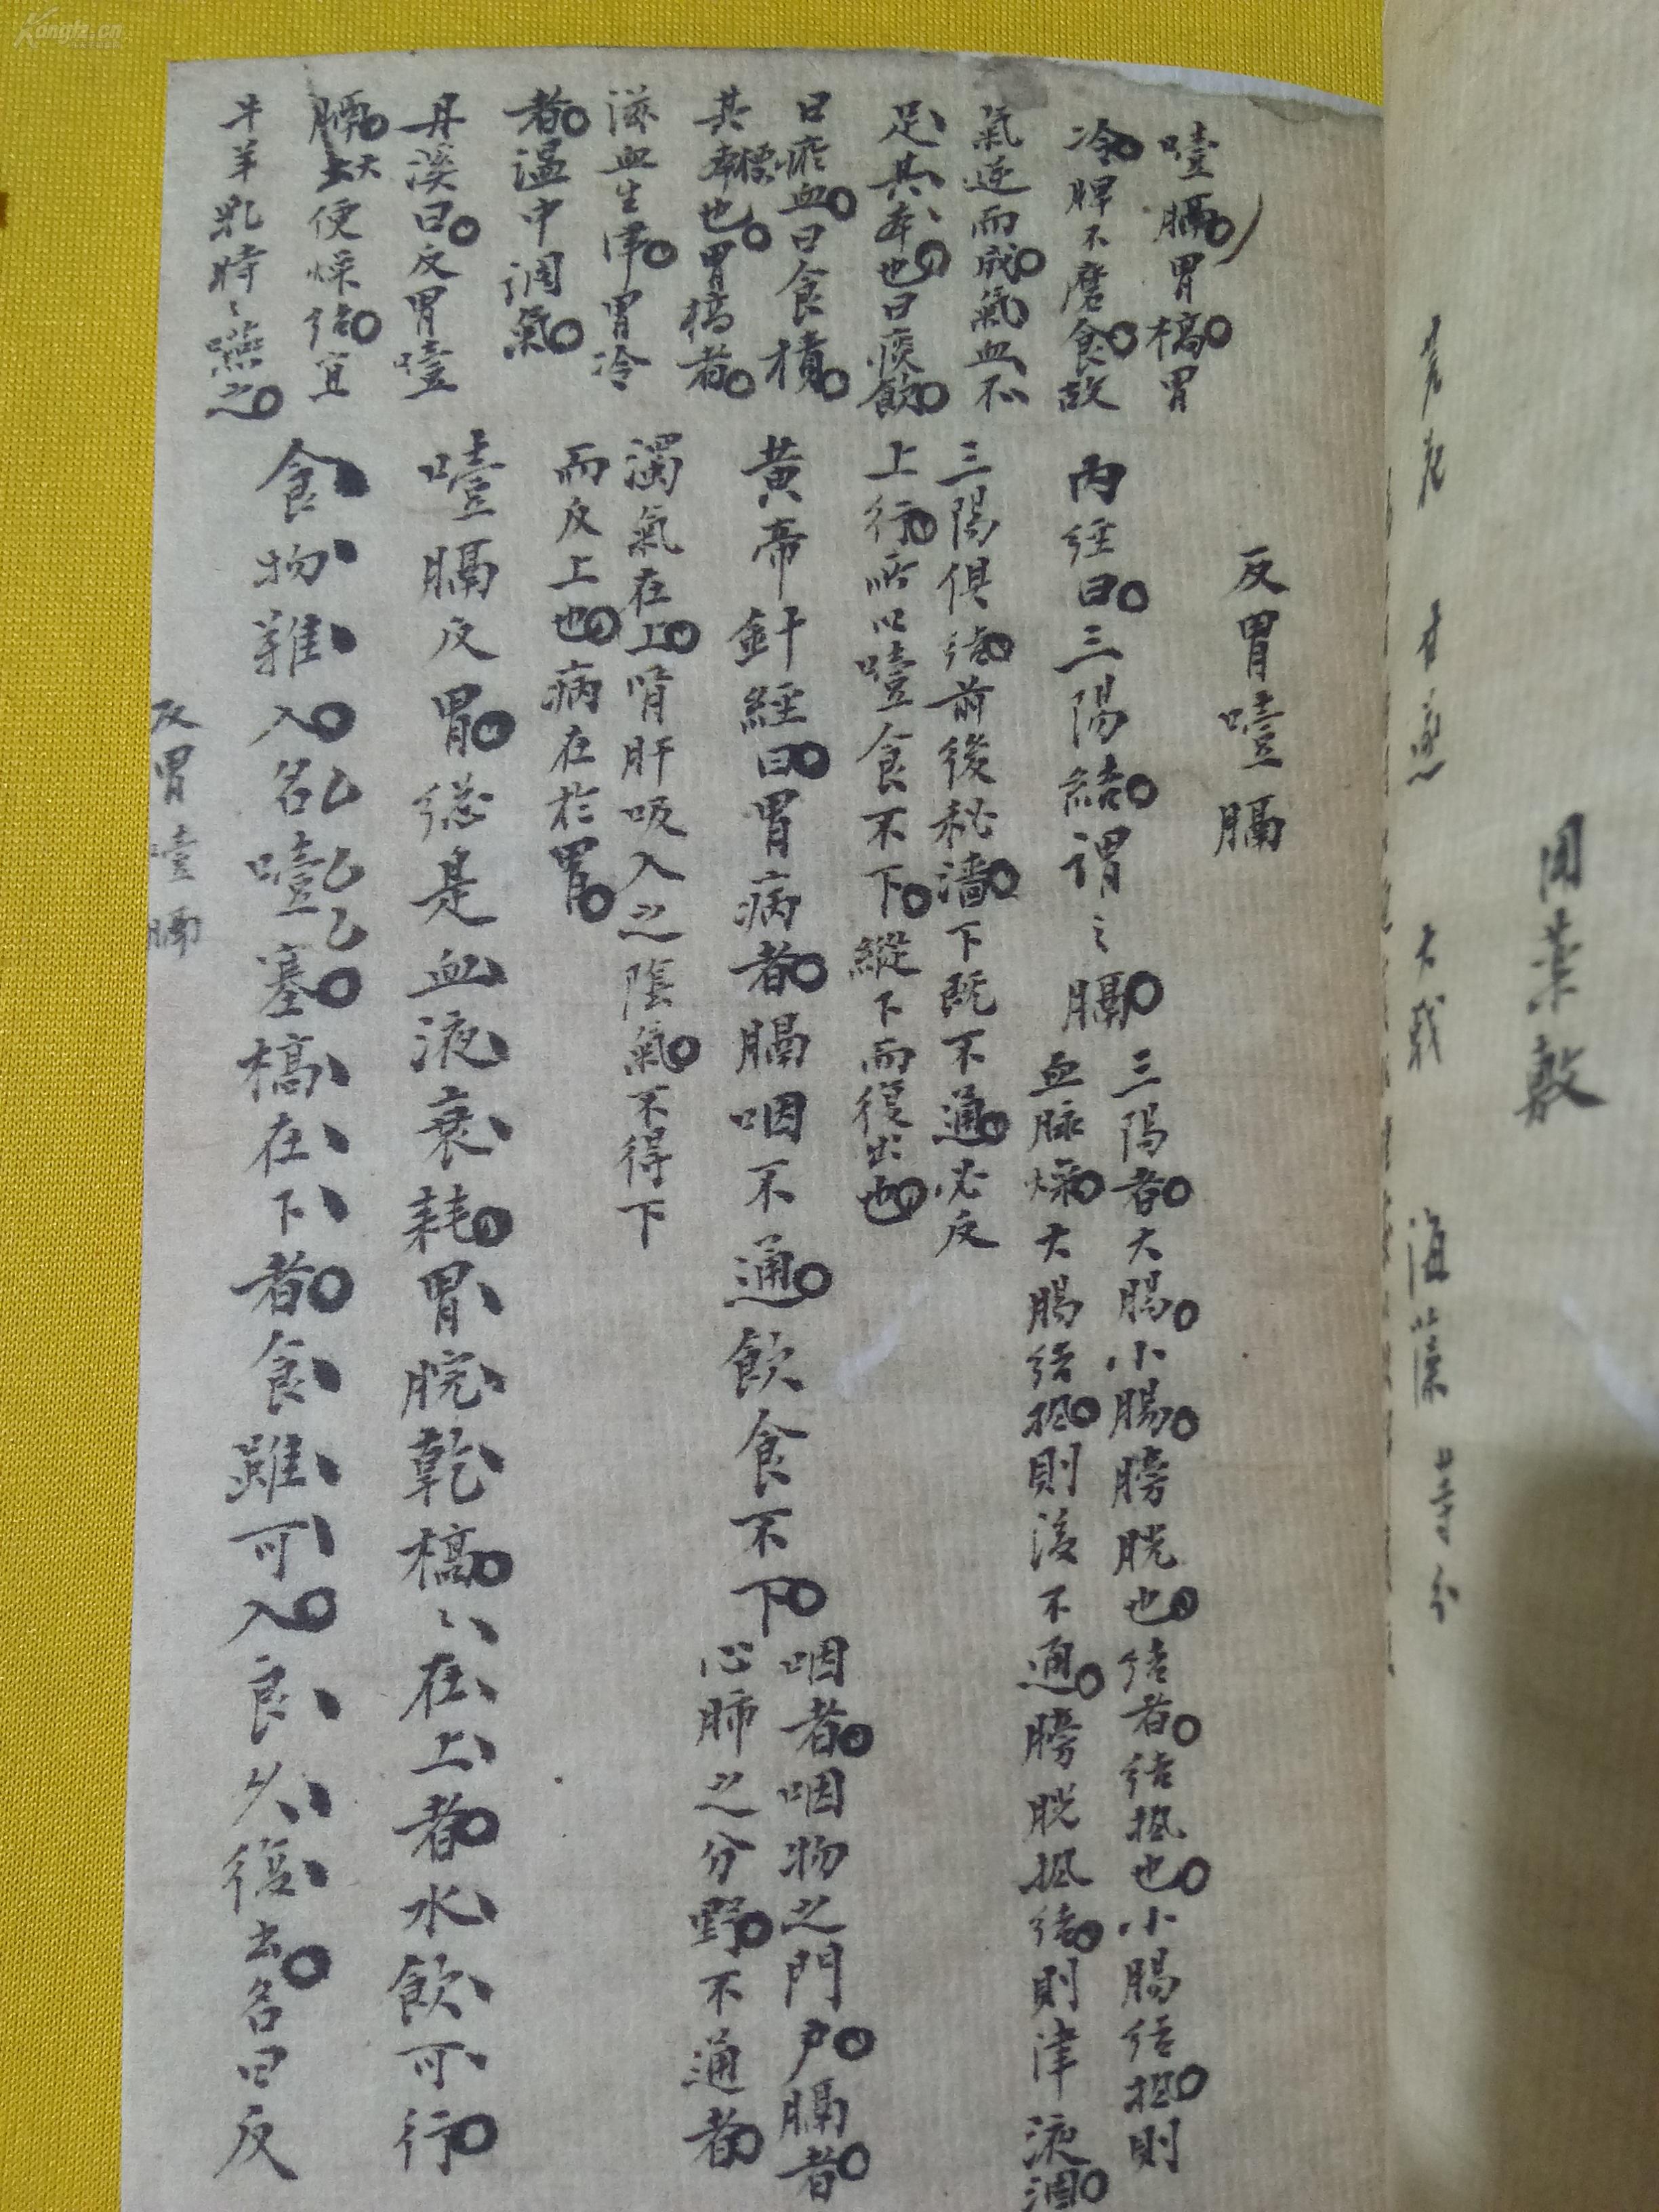 用藥敷
海藻 等分
反胃噎膈
噎膈胃槁胃
冷脾不磨食故
氣逆而成氣血不
足其本也曰痰飲
曰瘀血曰食積
其標也胃槁者
滋血生津胃冷
者溫中調氣
丹溪曰反胃噎
膈大便燥结宜
牛羊乳時〻嚥之
內经曰三陽結謂之膈
三陽者大腸小腸膀胱也结者结熱也小腸结熱則
血脉燥大腸结熱則後不通膀胱熱结則津液涸
三陽俱结前後秘濇下既不通必反
上行所以噎食不下縱下而復出也
黄帝針經曰胃病者膈咽不通飲食不下
咽者咽物之門户膈者
心肺之分野不通者
濁氣在上肾肝吸入之陰氣不得下
而反上也病在於胃
噎膈反胃總是血液衰耗胃脘乾槁〻在上者水飲可行
食物難入名噎塞槁在下者食雖可入良久復出名曰反
反胃噎膈
Kongfz.cn